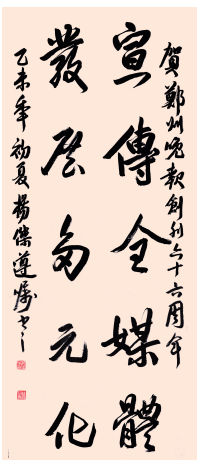 賀鄭州晚報創刊六十六周年
宣傳全媒體
發展多元化
乙未年初夏楊傑遵囑書之